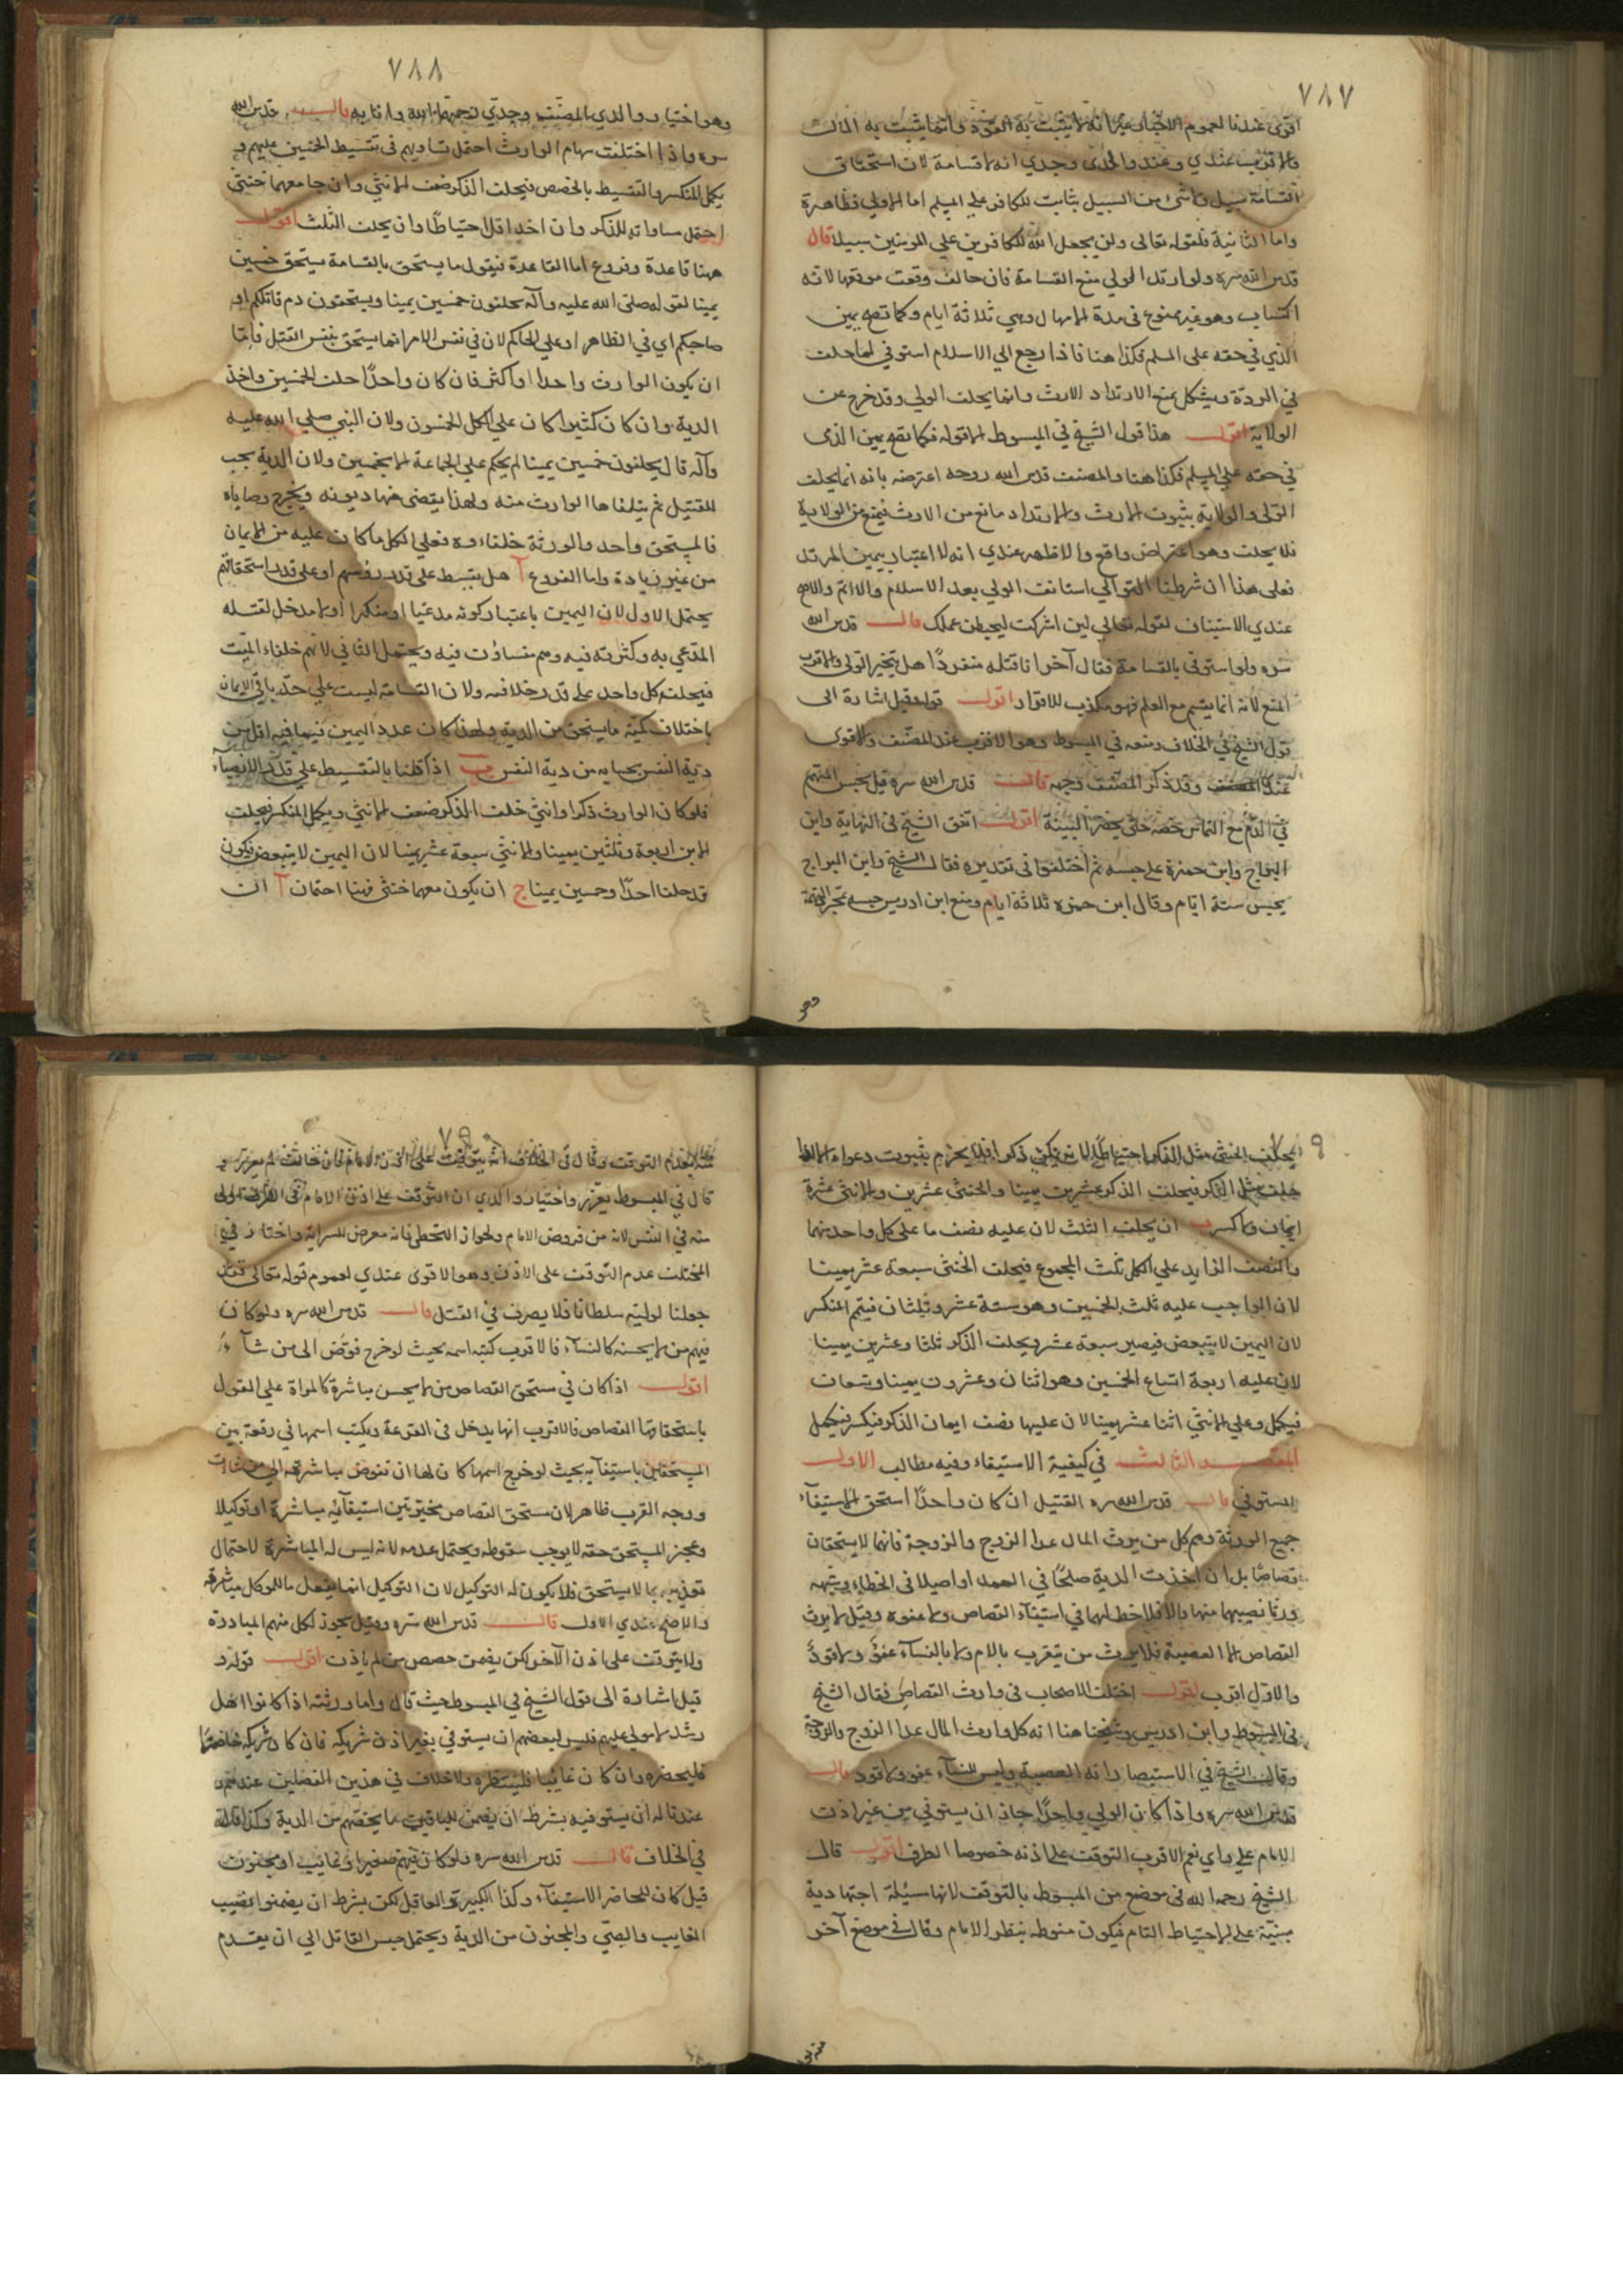 ٧٨٧
اقوى عندنا لعموم الاخبار غير انه لا يثبت به القود وانما يثبت به المال
والاقرب عندي وعند والدي وجدي انه لا قسامة لان استحقاق
القسامة سبيل ولا شئ من السبيل بثابت للكافر علي المسلم اما الاولي فظاهرة
واما الثانية فلقوله تعالى ولن يجعل الله للكافرين علي المؤمنين سبيلا قال
قدس الله سره ولو ارتد الولي منع القسامة فان حالف وقعت موقعها لانه
اكتساب وهو غير ممنوع في مدة الامهال وهي ثلاثة ايام وكما تصح يمين
الذي في حقه على المسلم فكذا هنا فاذا رجع الي الاسلام استوفي لما حلف
في الردة ويشكل بمنع الارتداد الارث وانما يحلف الولي وقد خرج عن
الولاية اقول هذا قول الشيخ في المبسوط الا قوله فكما تصح يمين الذى
في حقه علي المسلم فكذا هنا والمصنف قدس الله روحه اعترضه بانه انما يحلف
الولي والولاية بثبوت الارث والارتداد مانع من الارث فيمنع من الولاية
فلا يحلف وهو اعتراض واقع والاظهر عندي انه لا اعتبار بيمين المرتد
فعلى هذا ان شرطنا التوالي استانف الولي بعد الاسلام والا اتم والاصح
عندي الاستيناف لقوله تعالي لين اشركت ليحبطن عملك قال قدس الله
سره ولو استوفى بالقسامة فقال آخر انا قتلته منفردًا هل يتخير الولى والاقرب
المنع لانه انما يقسم مع العلم فهو مكذب للاقرار اقول قوله وقيل اشارة الى
قول الشيخ في الخلاف ومنعه في المبسوط وهو الاقرب عند المصنف والاقوى
عندي وقد ذكر المصنف وجهه قال قدس الله سره قيل يحبس المتهم
في الدم مع التماس خصمه حتى يحضر البينة اقول اتفق الشيخ في النهاية وابن
البراج وابن حمزة على حبسه ثم اختلفوا في تقديره فقال الشيخ وابن البراج
يحبس ستة ايام وقال ابن حمزه ثلاثة ايام ومنع ابن ادريس حبسه بمجرد التهمة
وهو
٧٨٨
وهو اختيار والدي المصنف وجدي رحمهما الله وانا به قال قدس الله
سره واذا اختلفت سهام الوارث احتمل تساويهم في تقسيط الخمسين عليهم و
يكمل المنكسر والتقسيط بالحصص فيحلف الذكر ضعف الانثى وان جامعهما خنثى
احتمل مساواته للذكر وان اخذ اقل احتياطًا وان يحلف الثلث اقول
ههنا قاعدة وفروع اما القاعدة فيقول ما يستحق بالقسامة يستحق خمسين
يمينا لقوله صلى الله عليه وآله يحلفون خمسين يمينا ويستحقون دم قاتلكم او
صاحبكم اي في الظاهر او علي الحاكم لان في نفس الامر انما يستحق بنفس القتل فاما
ان يكون الوارث واحدا او اكثر فان كان واحدًا حلف الخمسين واخذ
الدية وان كان كثيرا كان علي الكل الخمسون ولان النبي صلي الله عليه
وآله قال يحلفون خمسين يمينا لم يحكم علي الجماعة الا بخمسين ولان الدية يجب
للقتيل ثم يتلقاها الوارث منه ولهذا يقضى منها ديونه ويخرج وصاياه
فالمستحق واحد والورثة خلفاءوه فعلي الكل ما كان عليه من الايمان
من غير زيادة واما الفروع آ هل يقسط على قدر رؤسهم او علي قدر استحقاقهم
يحتمل الاول لان اليمين باعتبار كونه مدعيا او منكرا اولا مدخل لقلة
المدعي به وكثرته فيه وهم متساوون فيه ويحتمل الثاني لانهم خلفاء الميت
فيحلف كل واحد على قدر خلافته ولان القسامة ليست علي حد باقي الايمان
باختلاف كمية ما يستحق من الدية ولهذا كان عدد اليمين فيما فيه اقل من
دية النفس بحسابه من دية النفس ب اذا قلنا بالتقسيط علي قدر الانصباء
فلو كان الوارث ذكرا وانثى حلف الذكر ضعف الانثي ويكمل المنكسر فيحلف
الابن اربعة وثلثين يمينا والانثي سبعة عشر يمينا لان اليمين لا يتبعض فيكون
قد حلفا احدًا وخمسين يمينا ج ان يكون معهما خنثى فهنا احتمان آ ان
٩
يحلف الخنثى مثل الذكر احتياطًا لان يكون ذكرا فلا يجزم بثبوت دعواه الا اذا
حلف مثل الذكر فيحلف الذكر عشرين يمينا والخنثى عشرين والانثى عشرة
ايمان ولا كسر ب ان يحلف الثلث لان عليه نصف ما على كل واحد منهما
والنصف الزايد علي الكل ثلث المجموع فيحلف الخنثى سبعة عشر يمينا
لان الواجب عليه ثلث الخمسين وهو ستة عشر وثلثان فيتم المنكسر
لان اليمين لا يتبعض فيصير سبعة عشر ويحلف الذكر ثلثا وعشرين يمينا
لان عليه اربعة اتساع الخمسين وهو اثنان وعشرون يمينا وتسعان
فيكمل وعلي الانثي اثنا عشر يمينا لان عليها نصف ايمان الذكر فيكسر فيكمل
المقصد الثالث في كيفية الاستيفاء وفيه مطالب الاول
المستوفي قال قدس الله سره القتيل ان كان واحدًا استحق الاستيفاء
جميع الورثة وهم كل من يرث المال عدا الزوج والزوجة فانهما لا يستحقان
قصاصًا بل ان اخذت الدية صلحًا في العمد او اصيلا في الخطاء وشبهه
ورثا نصيبهما منها والا فلا حظ لهما في استيفاء القصاص ولا عفوه وقيل لا يرث
القصاص الا العصبة فلا يرث من يتقرب بالام ولا بالنساء عفوً ولا قودً
والاول اقرب اقول اختلف الاصحاب في وارث القصاص فقال الشيخ
في المبسوط وابن ادريس وشيخنا هنا انه كل وارث المال عدا الزوج والزوجة
وقال الشيخ في الاستبصار انه العصبة وليس للنساء عفو ولا قود قال
قدس الله سره واذا كان الولي واحدًا جاز ان يستوفي من غير اذن
الامام علي راي نعم الاقرب التوقف علي اذنه خصوصا الطرف اقول قال
الشيخ رحمه الله في موضع من المبسوط بالتوقف لانها مسئلة اجتهادية
مبنية على الاحتياط التام فيكون منوطه بنظر الامام وقال في موضع آخر
منه
٧٩٠
منه بعدم التوقف وقال في الخلاف انه يتوقف على اذن الامام فان خالف لم يعزر و
قال في المبسوط يعزر واختيار والدي ان التوقف على اذن الامام في الطرف اولى
منه في النفس لانه من فروض الامام ولجواز التخطي فانه معرض للسراية واختار في
المختلف عدم التوقف على الاذن وهو الاقوى عندي لعموم قوله تعالى فقد
جعلنا لوليه سلطانا فلا يسرف في القتل قال قدس الله سره ولو كان
فيهم من لا يحسنه كالنساء فالاقرب كتبه اسمه بحيث لو خرج فوض الى من شاء
اقول اذا كان في مستحق القصاص من لا يحسن مباشرة كالمراة علي القول
باستحقاقها القصاص فالاقرب انها يدخل في القرعة ويكتب اسمها في رقعة بين
المستحقين باستيفآيه بحيث لو خرج اسمها كان لها ان تفوض مباشرته الي من شاءت
ووجه القرب ظاهر لان مستحق القصاص مخير بين استيفآئه مباشرة او توكيلا
وعجز المستحق حقه لا يوجب سقوطه ويحتمل عدمه لانه ليس له المباشرة لاحتمال
تعذيبه بما لا يستحق فلا يكون له التوكيل لان التوكيل انما يفعل ما للموكل مباشرته
والاصح عندي الاول قال قدس الله سره وقيل يجوز لكل منهم المبادرة
ولا يتوقف على اذن الآخر لكن يضمن حصص من لم ياذن اقول قوله و
قيل اشارة الى قول الشيخ في المبسوط حيث قال واما ورثته اذا كانوا اهل
رشد لا مولي عليهم فليس لبعضهم ان يستوفي بغير اذن شريكه فان كان شريكه حاضرًا
فليحضره وان كان غايبا فلينتظره ولا خلاف في هذين الفصلين عندهم و
عندنا له ان يستوفيه بشرط ان يضمن للباقين ما يخصهم من الدية وكذا قال
في الخلاف قال قدس الله سره ولو كان فيهم صغير او غايب او مجنون
قيل كان للحاضر الاستيفاء وكذا الكبير والعاقل لكن بشرط ان يضمنوا نصيب
الغايب والصبي والمجنون من الدية ويحتمل حبس القاتل الي ان يقدم